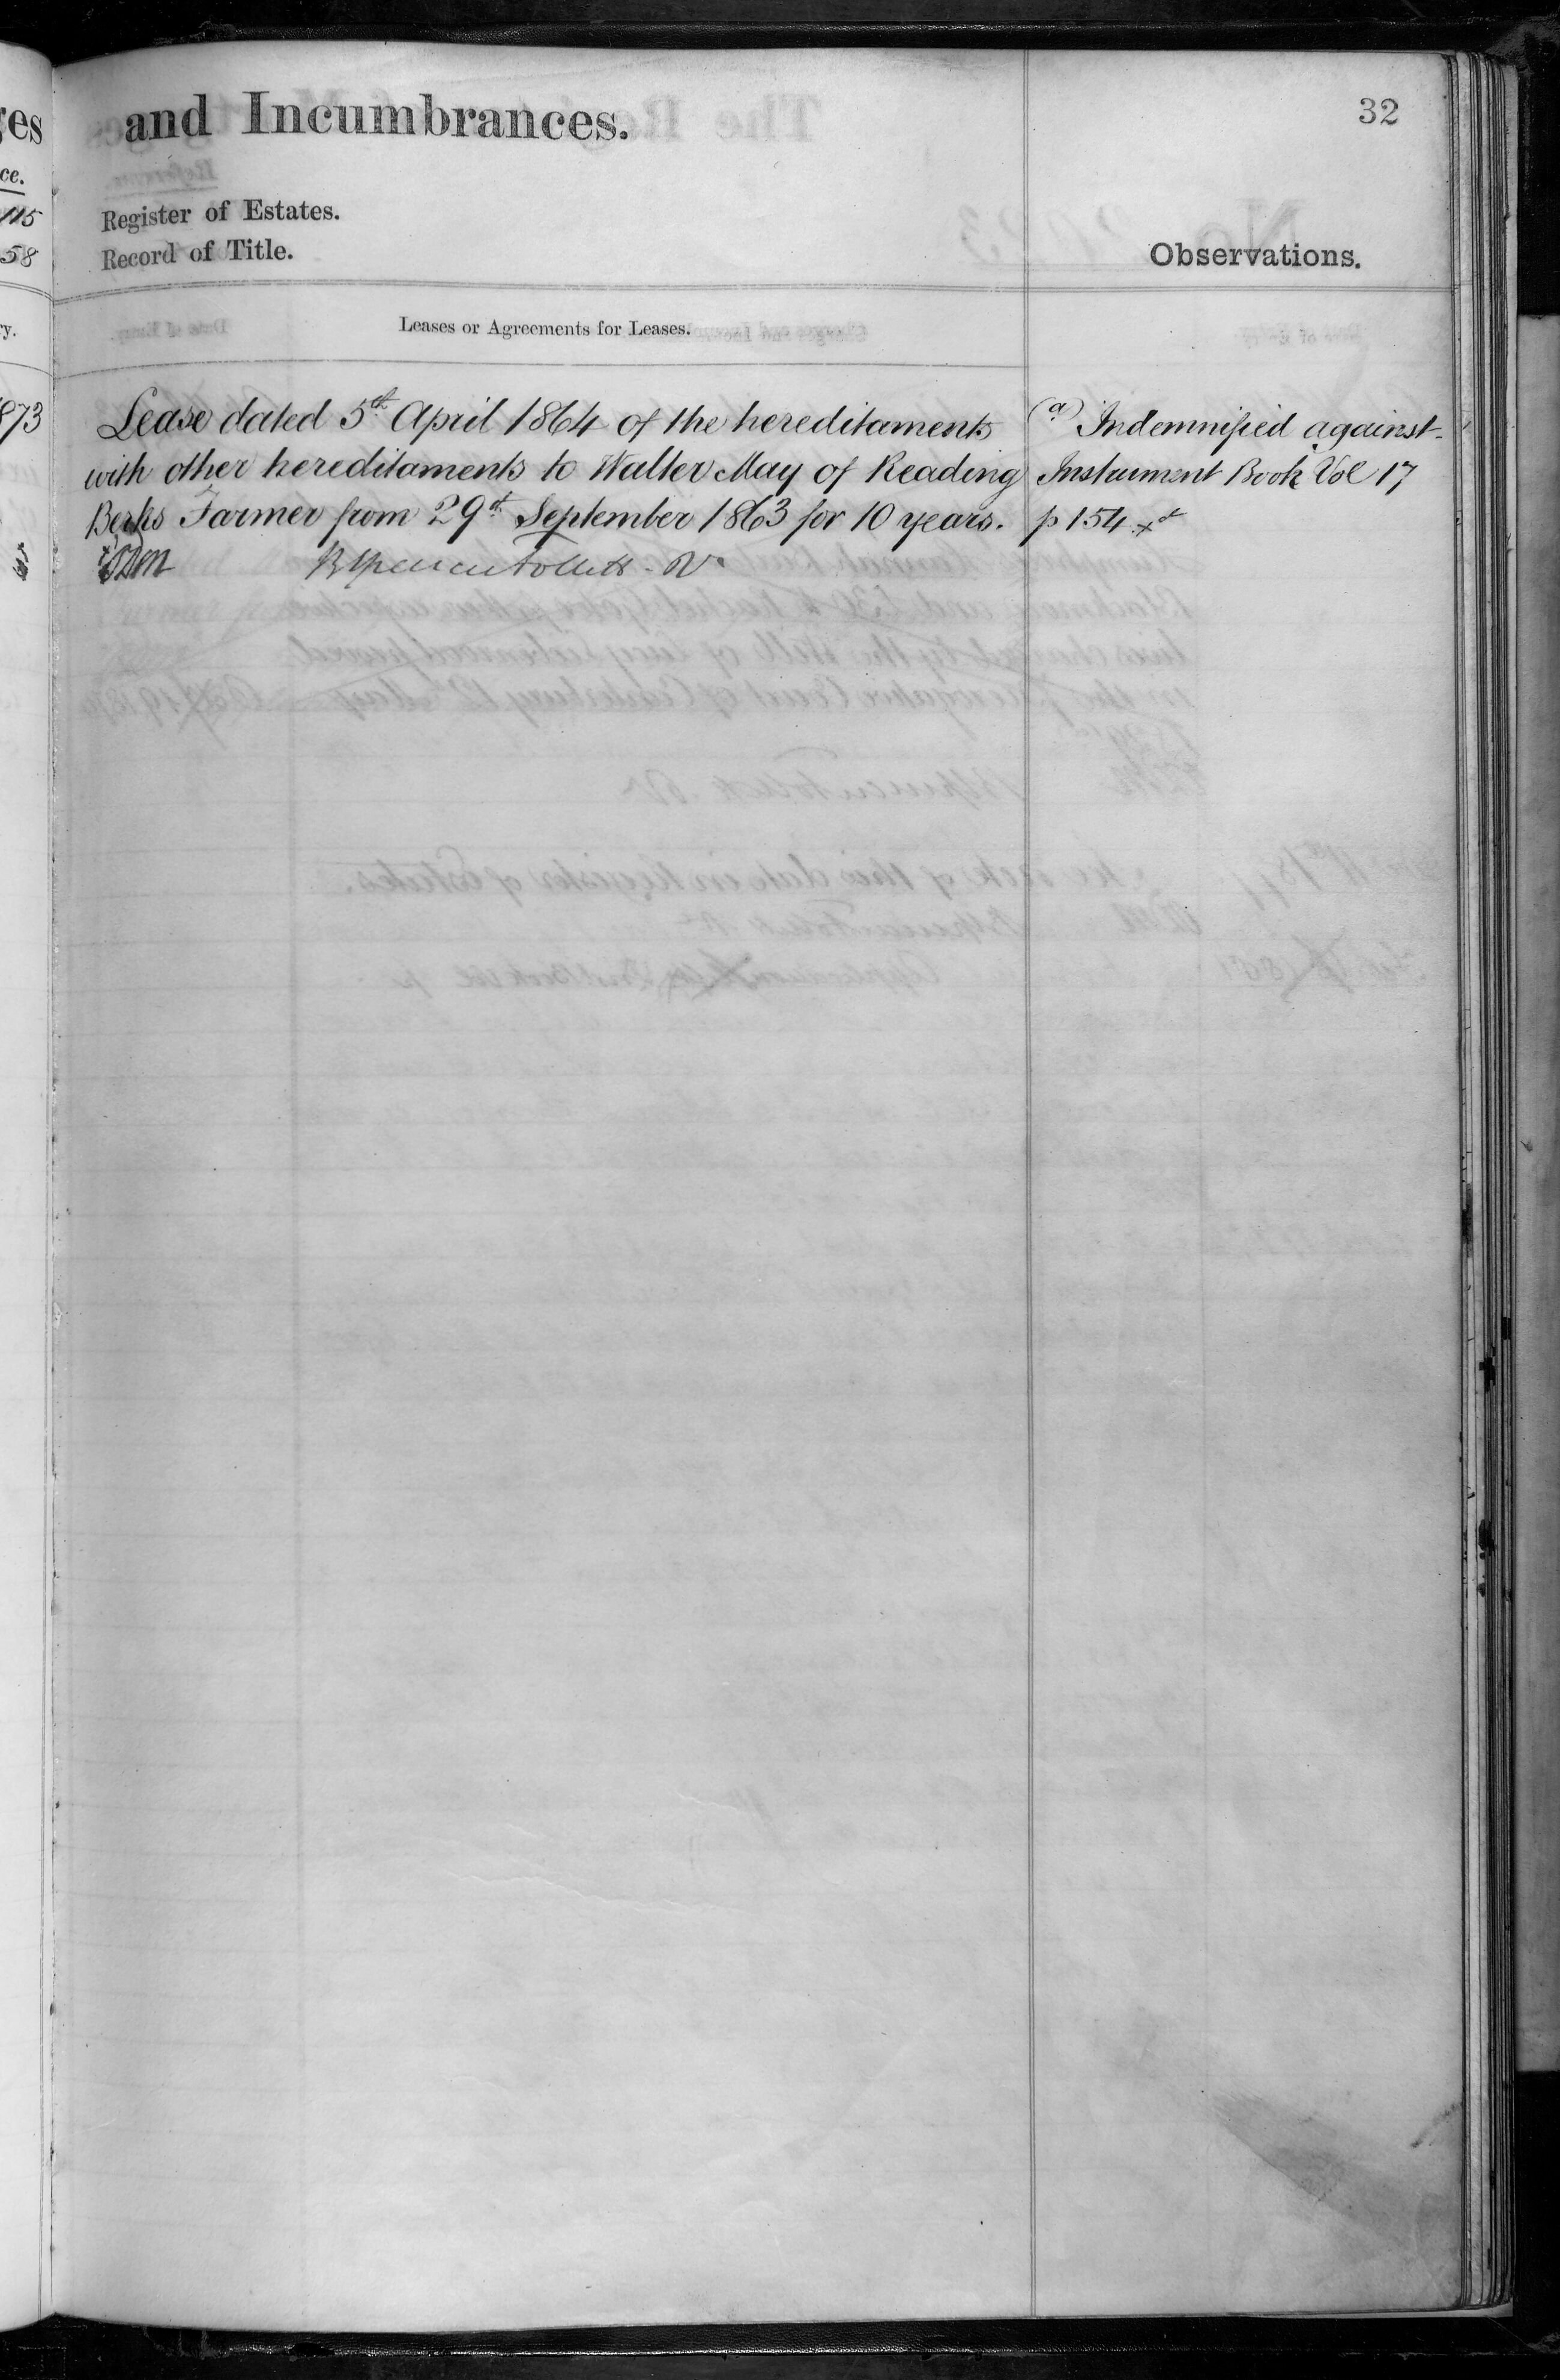 32
and Incumbrances.
Register of Estates.
Record of Title.
Observations.
Leases or Agreements for Leases.
Lease dated 5th April 1864 of the hereditaments
with other hereditaments to Walter May of Reading
Berks Farmer from 29th September 1863 for 10 years.
(a) Indemnified against
Instrument Book Vol 17
p 154
ges
ce.
115
58
ry.
873